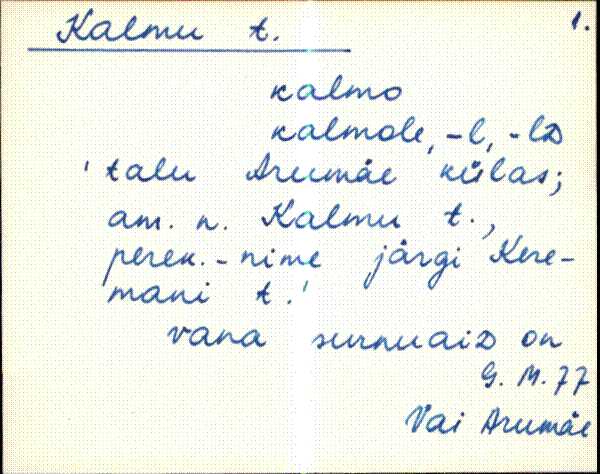 Kalmu t. 1.
kalmo
kalmole, -l, -lD
'talu Arumäe külas;
am. n. Kalmu t.,
perek.-nime järgi Kere-
mani t.'
vana surnuaiD on
G. M. 77
Vai Arumäe